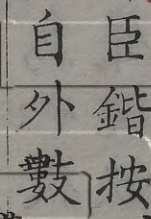 臣鍇按
自外數